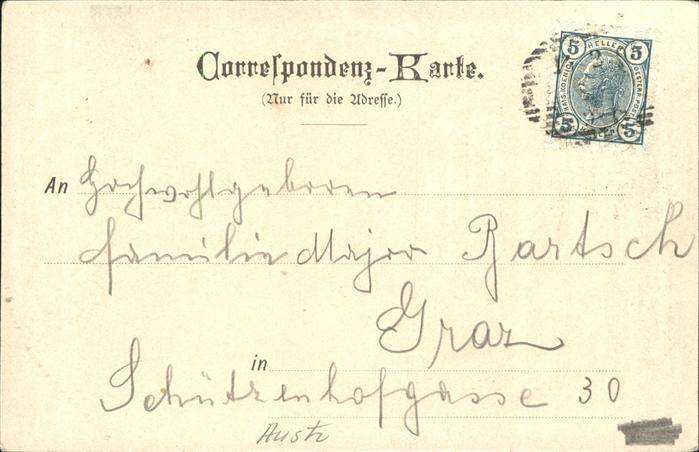 Correspondenz-Karte.
(Nur für die Adresse.)
5 HELLER 5
KAIS. KOENIGL. OESTERR. POST
5 5
An Hochwohlgeboren
Familie Major Bartsch
Graz
in
Schützenhofgasse 30
Austr